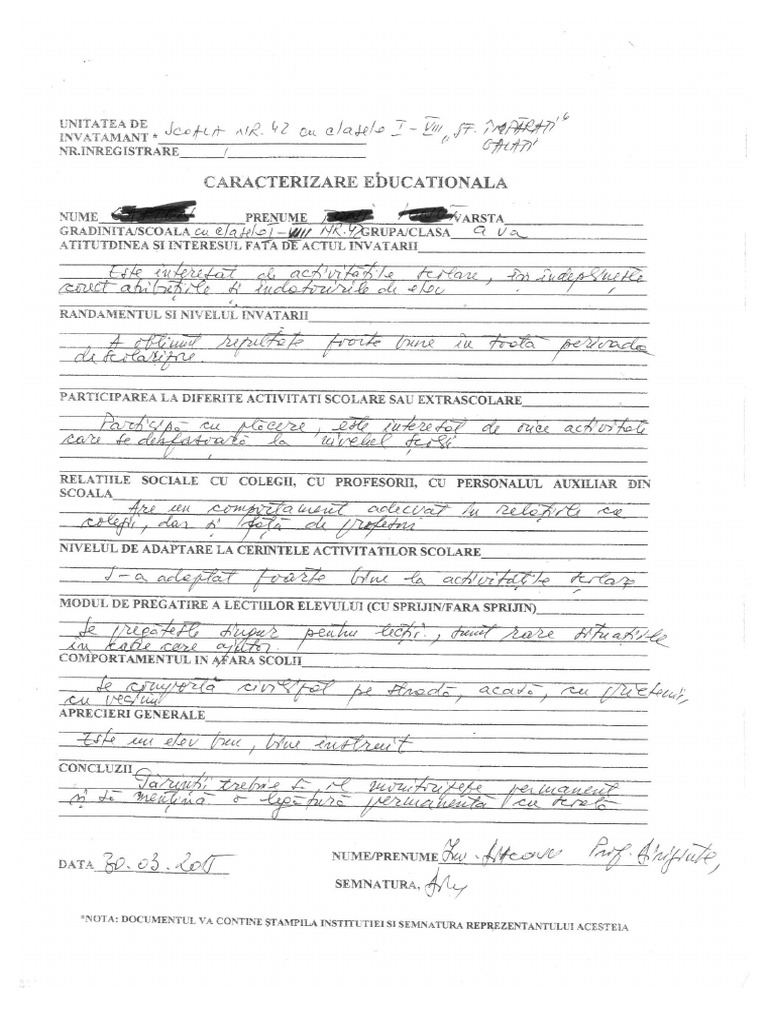 UNITATEA DE
INVATAMANT * SCOALA NR. 42 cu clasele I - VIII „SF. ÎMPĂRAȚI“
GALAȚI
NR.INREGISTRARE /
CARACTERIZARE EDUCATIONALA
NUME PRENUME VARSTA
GRADINITA/SCOALA cu clasele I - VIII NR. 42 GRUPA/CLASA a va
ATITUTDINEA SI INTERESUL FATA DE ACTUL INVATARII
Este interesat de activitățile școlare, își îndeplinește
corect atribuțiile și îndatoririle de elev
RANDAMENTUL SI NIVELUL INVATARII
A obținut rezultate foarte bune în toată perioada
de școlarizare.
PARTICIPAREA LA DIFERITE ACTIVITATI SCOLARE SAU EXTRASCOLARE
Participă cu plăcere, este interesat de orice activitate
care se desfășoară la nivelul școlii
RELATIILE SOCIALE CU COLEGII, CU PROFESORII, CU PERSONALUL AUXILIAR DIN
SCOALA
Are un comportament adecvat în relațiile cu
colegii, dar și față de profesori
NIVELUL DE ADAPTARE LA CERINTELE ACTIVITATILOR SCOLARE
S-a adaptat foarte bine la activitățile școlare
MODUL DE PREGATIRE A LECTIILOR ELEVULUI (CU SPRIJIN/FARA SPRIJIN)
Se pregătește singur pentru lecții, sunt rare situațiile
în care cere ajutor.
COMPORTAMENTUL IN AFARA SCOLII
Se comportă civilizat pe stradă, acasă, cu prietenii,
cu vecinii
APRECIERI GENERALE
Este un elev bun, bine instruit
CONCLUZII
Părinții trebuie să îl monitorizeze permanent
și să mențină o legătură permanentă cu școala
DATA 30.03.2011
NUME/PRENUME Prof. Diriginte,
SEMNATURA,
*NOTA: DOCUMENTUL VA CONTINE ȘTAMPILA INSTITUTIEI SI SEMNATURA REPREZENTANTULUI ACESTEIA